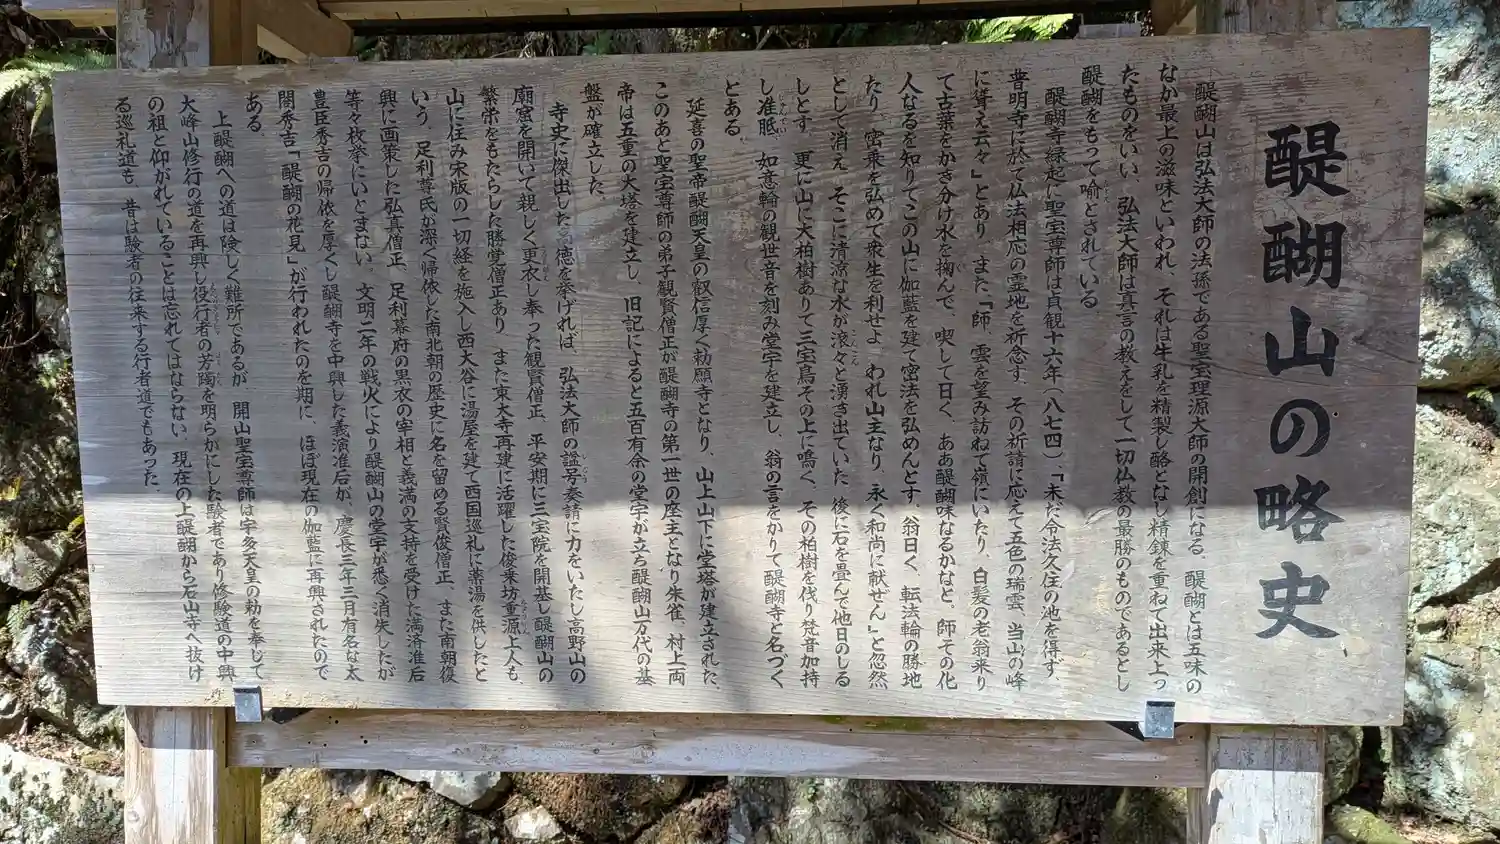 醍醐山の略史
醍醐山は弘法大師の法孫である聖宝理源大師の開創になる。醍醐とは五味の
なか最上の滋味といわれ、それは牛乳を精製し酪となし精錬を重ねて出来上っ
たものをいい、弘法大師は真言の教えをして一切仏教の最勝のものであるとし
醍醐をもって喩とされている
醍醐寺縁起に聖宝尊師は貞観十六年（八七四）、「未だ令法久住の池を得ず、
普明寺に於て仏法相応の霊地を祈念す、その祈請に応えて五色の瑞雲、当山の峰
に聳え云々」とあり、また「師、雲を望み訪ねて嶺にいたり、白髪の老翁来り
て古葉をかき分け水を掬んで、喫して曰く、ああ醍醐味なるかなと。師その化
人なるを知りてこの山に伽藍を建て密法を弘めんとす、翁曰く、転法輪の勝地
たり 密乗を弘めて衆生を利せよ、われ山主なり、永く和尚に献ぜん」と忽然
として消え そこに清凉な水が滾々と湧き出ていた 後に石を畳んで他日のしる
しとす 更に山に大柏樹ありて三宝鳥その上に鳴く、その柏樹を伐り梵音加持
し准胝、如意輪の観世音を刻み堂宇を建立し、翁の言をかりて醍醐寺と名づく
とある
延喜の聖帝醍醐天皇の叡信厚く勅願寺となり、山上山下に堂塔が建立された、
このあと聖宝尊師の弟子観賢僧正が醍醐寺の第一世の座主となり朱雀、村上両
帝は五重の大塔を建立し、旧記によると五百有余の堂宇が立ち醍醐山万代の基
盤が確立した、
寺史に傑出した高徳を挙げれば、弘法大師の諡号奏請に力をいたし高野山の
廟窟を開いて親しく更衣し奉った観賢僧正、平安期に三宝院を開基し醍醐山の
繁栄をもたらした勝覚僧正あり また東大寺再建に活躍した俊乗坊重源上人も、
山に住み宋版の一切経を施入し西大谷に湯屋を建て西国巡礼に薬湯を供したと
いう、足利尊氏が深く帰依した南北朝の歴史に名を留める賢俊僧正、また南朝復
興に画策した弘真僧正、足利幕府の黒衣の宰相と義満の支持を受けた満済准后
等々枚挙にいとまない、文明二年の戦火により醍醐山の堂宇が悉く消失したが
豊臣秀吉の帰依を厚くし醍醐寺を中興した義演准后が、慶長三年三月有名な太
閤秀吉「醍醐の花見」が行われたのを期に、ほぼ現在の伽藍に再興されたので
ある
上醍醐への道は険しく難所であるが 開山聖宝尊師は宇多天皇の勅を奉じて
大峰山修行の道を再興し役行者の芳躅を明らかにした験者であり修験道の中興
の祖と仰がれていることは忘れてはならない、現在の上醍醐から石山寺へ抜け
る巡礼道も、昔は験者の往来する行者道でもあった、